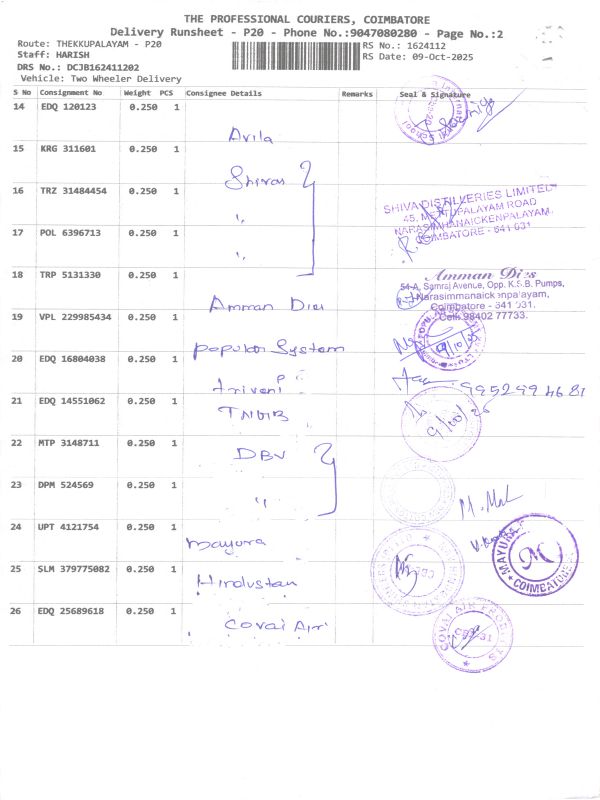 THE PROFESSIONAL COURIERS, COIMBATORE
Delivery Runsheet - P20 - Phone No.:9047080280 - Page No.:2
Route: THEKKUPALAYAM - P20
RS No.: 1624112
Staff: HARISH
RS Date: 09-Oct-2025
DRS No.: DCJB162411202
Vehicle: Two Wheeler Delivery
S No Consignment No Weight PCS Consignee Details Remarks Seal & Signature
14 EDQ 120123 0.250 1
Avila
15 KRG 311601 0.250 1
Shivas
16 TRZ 31484454 0.250 1
"
SHIVA DISTILLERIES LIMITED
45, METTUPALAYAM ROAD
NARASIMHANAICKENPALAYAM,
COIMBATORE - 641 031
17 POL 6396713 0.250 1
"
18 TRP 5131330 0.250 1
Amman Dies
54-A, Samraj Avenue, Opp. K.S.B. Pumps,
Narasimmanaickenpalayam,
Coimbatore - 641 031.
Cell: 98402 77733.
Amman Dies
19 VPL 229985434 0.250 1
Popular System
9/10/
20 EDQ 16804038 0.250 1
triveni
9952994681
21 EDQ 14551062 0.250 1
TNGB
9/10/25
22 MTP 3148711 0.250 1
DBV
23 DPM 524569 0.250 1
"
24 UPT 4121754 0.250 1
mayura
MAYURA
M
COIMBATORE
25 SLM 379775082 0.250 1
Hindustan
26 EDQ 25689618 0.250 1
Covai Air
COVAI AIR PRODUCTS